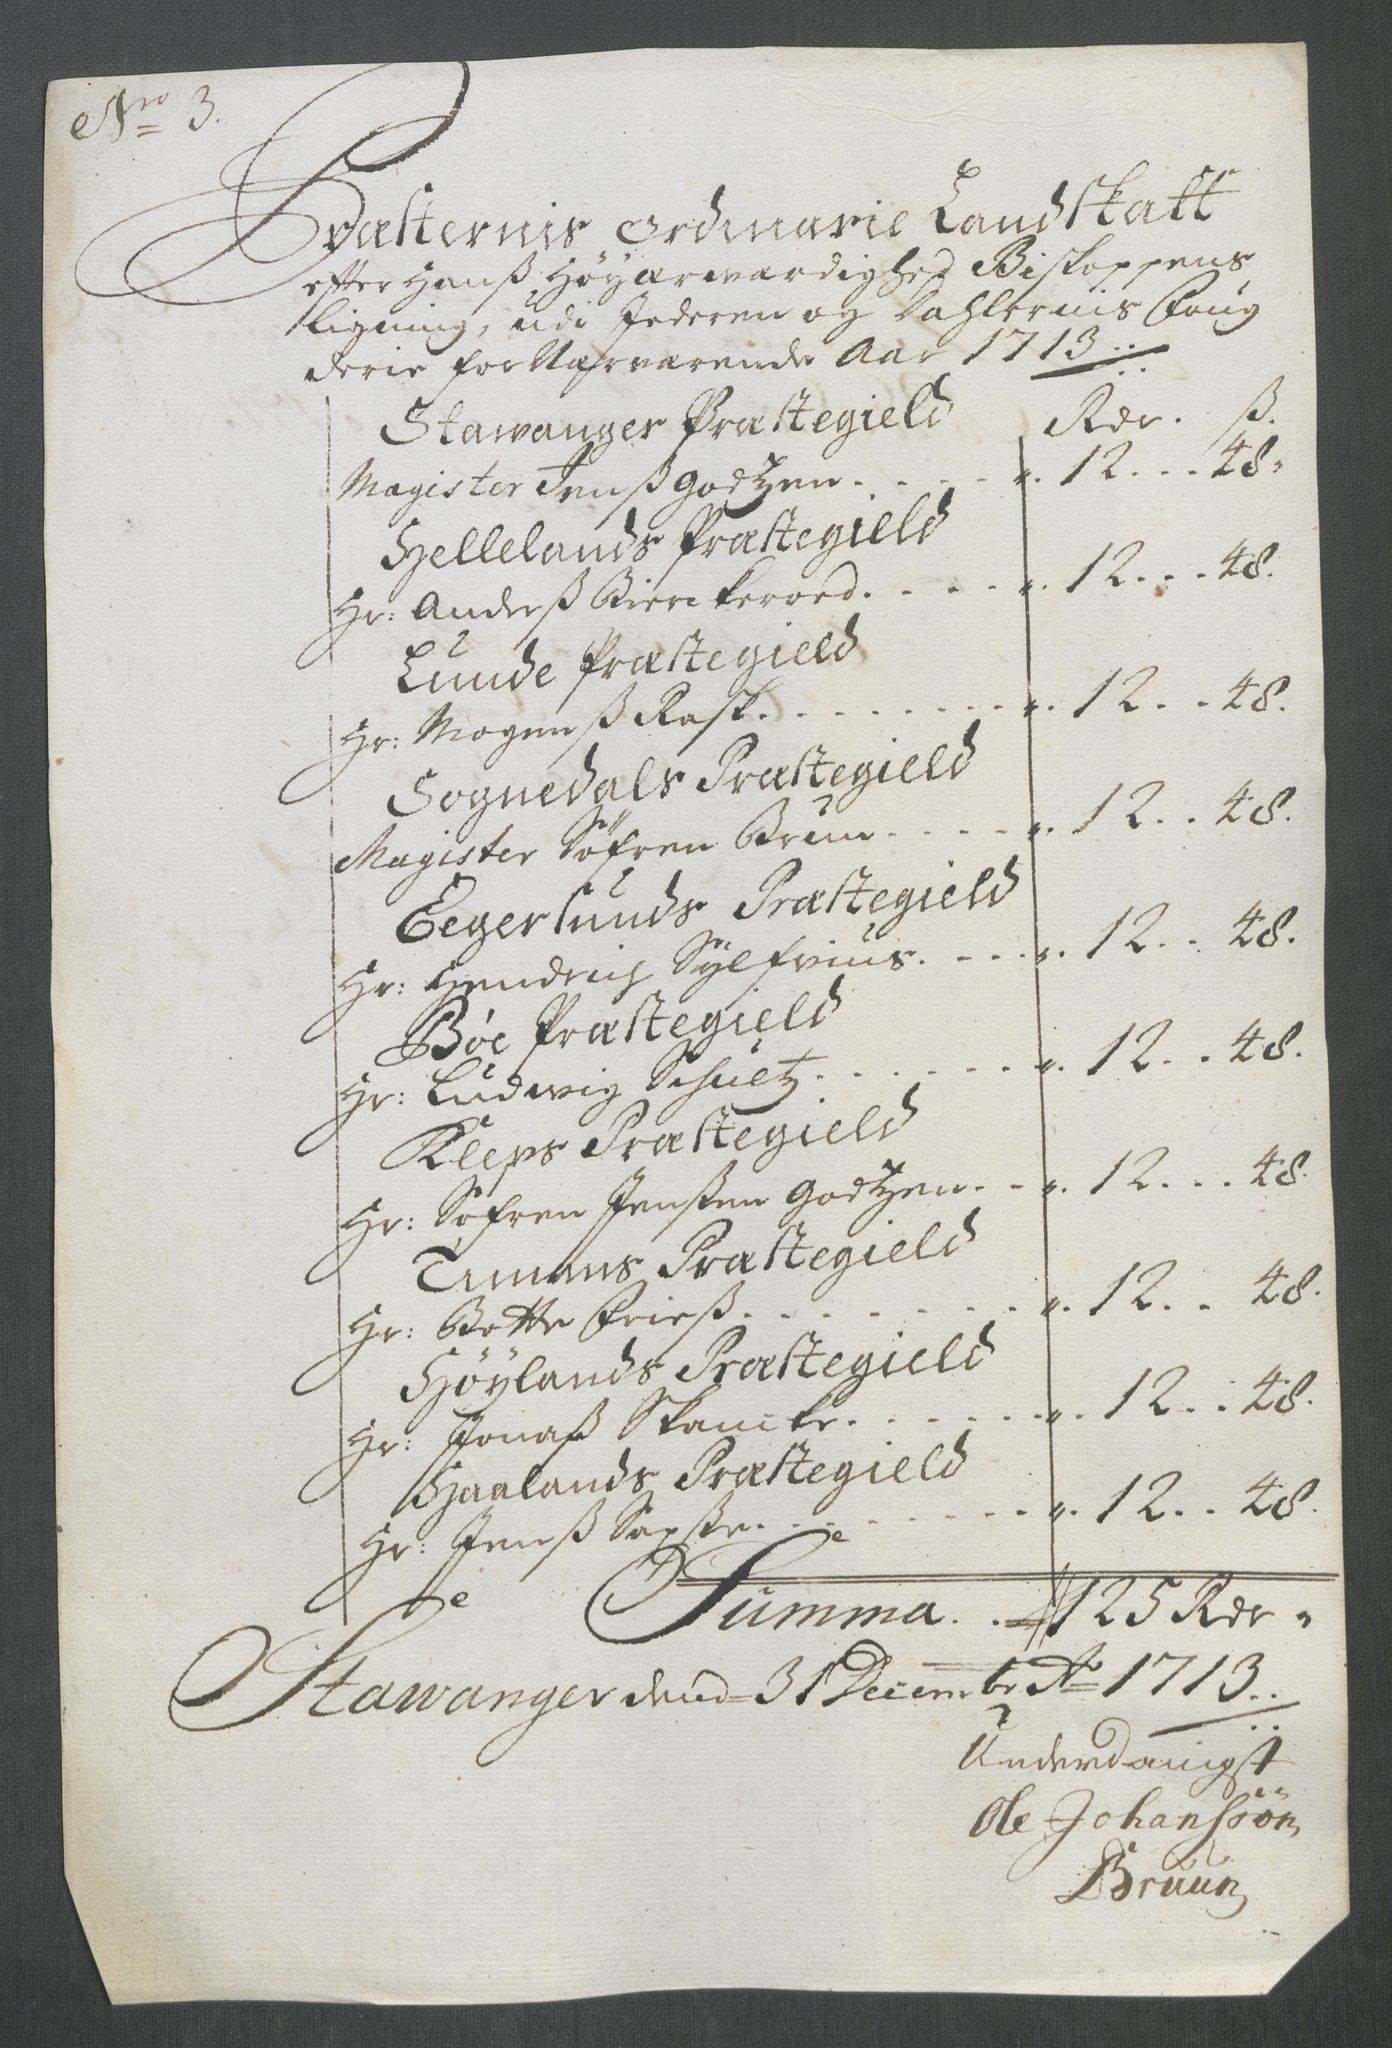 Nro 3.
Præsternis Ordinarie Landskatt
efter Hanß Höyærwærdighed Biskoppens
Ligning, udi Jederen og Dahlernis Foug
derie for Nærwærende Aar 1713
Stawanger Præstegield Rdr. ß.
Magister Jenß Godtzen. . . . . 12 . . . 48.
Hellelands Præstegield
Hr: Anderß Bierckeroed. . . . . 12 . . . 48.
Lunde Præstegield
Hr: Mogenß Rask. . . . . . . . 12 . . . 48.
Sognedals Præstegield
Magister Söfren Brun. . . . . 12 . . 48.
Eegersunds Præstegield
Hr: Hendrich Sylfvius. . . . . 12 . . 48.
Böe Præstegield
Hr: Ludwig Schultz. . . . . . . 12 . . 48.
Kleps Præstegield
Hr: Söfren Jenßen Godtzen. . . 12 . . . 48.
Timms Præstegield
Hr: Botte Frieß. . . . . . . . . 12 . . 48.
Höylands Præstegield
Hr: Jonaß Skancke. . . . . . . 12 . . 48.
Haalands Præstegield
Hr: Jenß . . . . . . . . . 12 . . 48.
Summa. . 125 Rdr
Stawanger dend 31 Decembr Ao 1713
Underdanigst
Ole Johanssön
Bruun